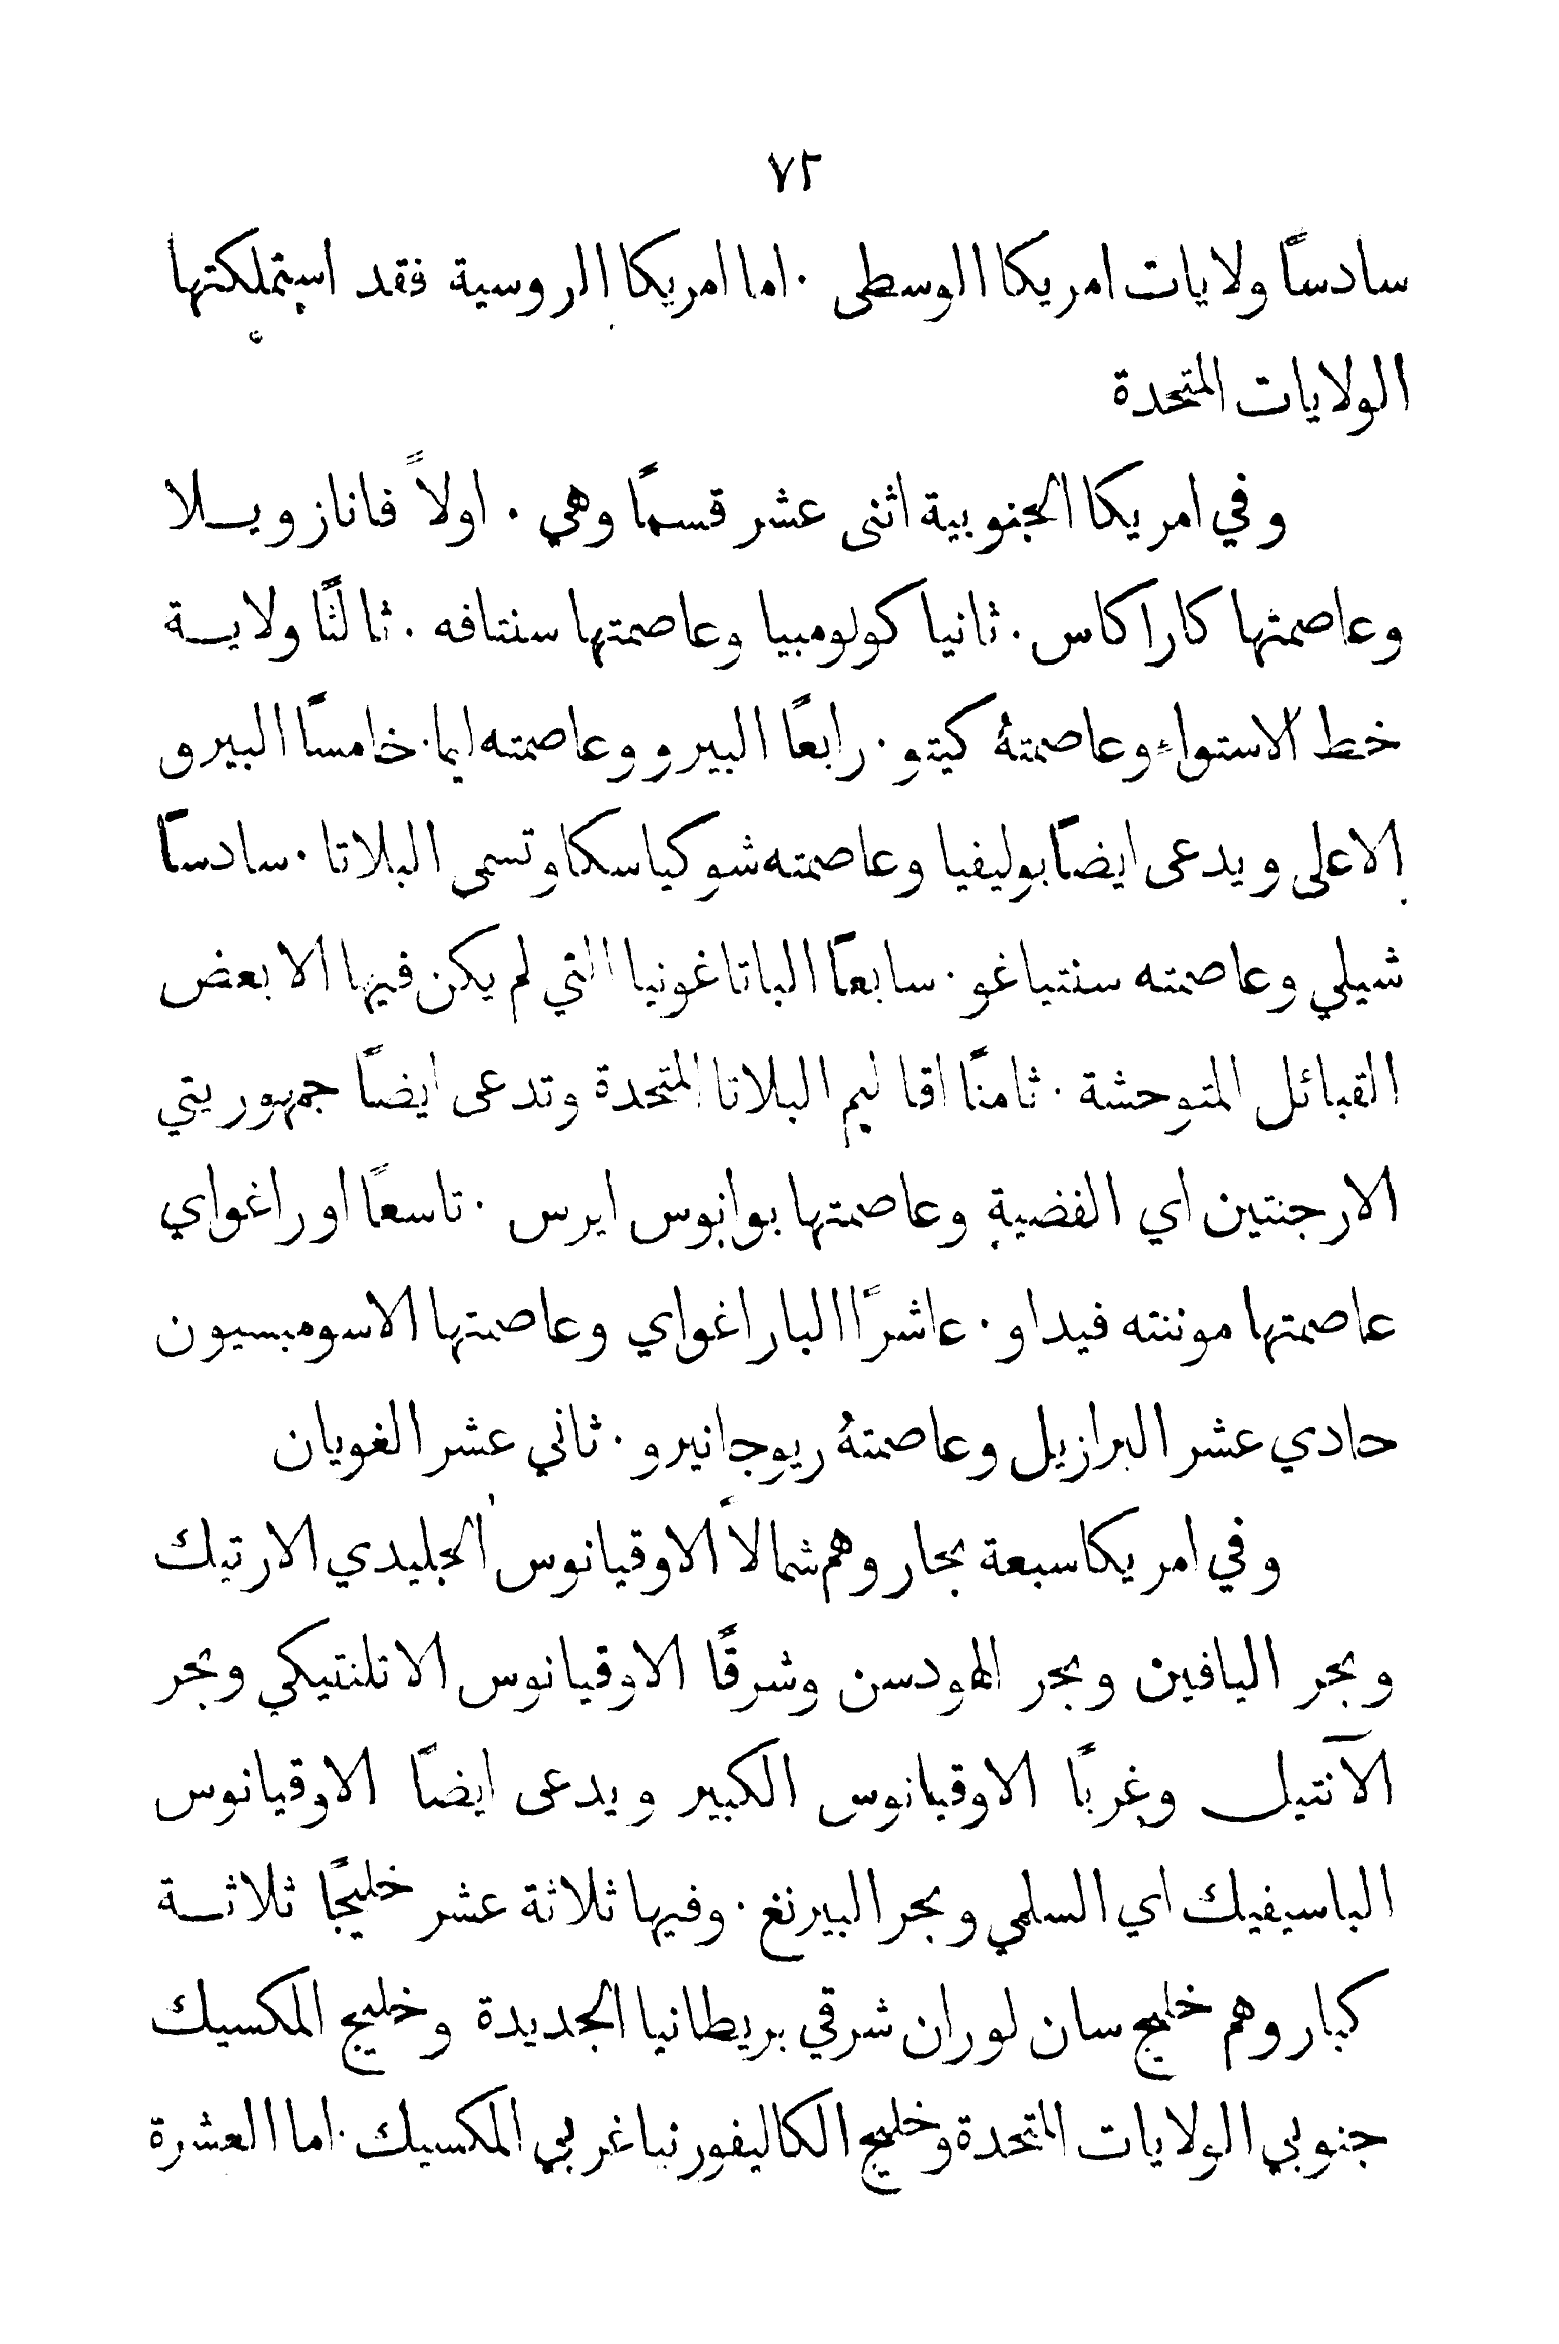 ٧٢
سادسًا ولايات امريكا الوسطى ٠ اما امريكا الروسية فقد استملكتها
الولايات المتحدة
وفي امريكا الجنوبية اثنى عشر قسمًا وهي ٠ اولاً فانازويــلا
وعاصمتها كاراكاس ٠ ثانيا كولومبيا وعاصمتها سنتافه ٠ ثالثًا ولايــة
خط الاستواء وعاصمتهُ كيتو ٠ رابعًا البيرو وعاصمته ليما ٠ خامسًا البيرو
الاعلى ويدعى ايضًا بوليفيا وعاصمته شوكياسكا وتسمى البلاتا ٠ سادسًا
شيلي وعاصمته سنتياغو ٠ سابعًا الباتاغونيا التي لم يكن فيها الا بعض
القبائل المتوحشة ٠ ثامنًا اقاليم البلاتا المتحدة وتدعى ايضًا جمهوريتي
الارجنتين اي الفضية وعاصمتها بوانوس ايرس ٠ تاسعًا اوراغواي
عاصمتها موننته فيداو ٠ عاشرًا الباراغواي وعاصمتها الاسومبسيون
حادي عشر البرازيل وعاصمتهُ ريوجانيرو ٠ ثاني عشر الغويان
وفي امريكا سبعة بحار وهم شمالاً الاوقيانوس الجليدي الارتيك
وبحر اليافين وبحر الهودسن وشرقًا الاوقيانوس الاتلنتيكي وبحر
الآنتيل وغربًا الاوقيانوس الكبير ويدعى ايضًا الاوقيانوس
الباسيفيك اي السلمي وبحر البيرنغ ٠ وفيها ثلاثة عشر خليجًا ثلاثــة
كبار وهم خليج سان لوران شرقي بريطانيا الجديدة وخليج المكسيك
جنوبي الولايات المتحدة وخليج الكاليفورنيا غربي المكسيك ٠ اما العشرة